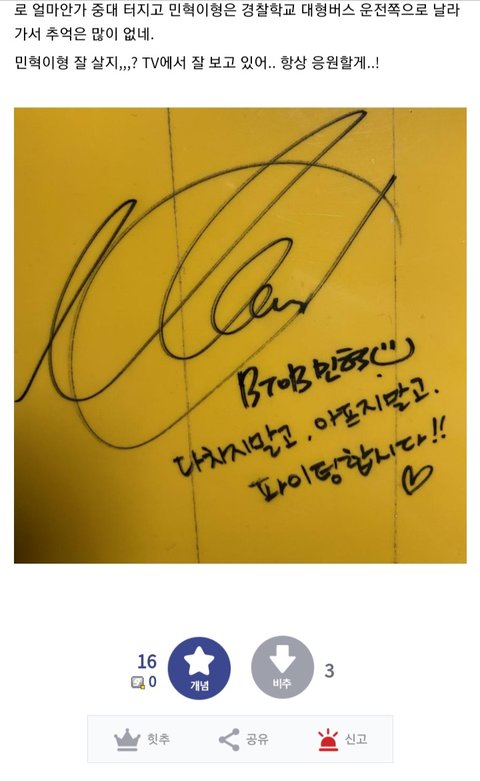 로 얼마안가 중대 터지고 민혁이형은 경찰학교 대형버스 운전쪽으로 날라
가서 추억은 많이 없네.
민혁이형 잘 살지,,,? TV에서 잘 보고 있어.. 항상 응원할게..!
BTOB 민혁
다치지말고. 아프지말고.
파이팅합시다!!
16
0
개념
비추
3
힛추
공유
신고